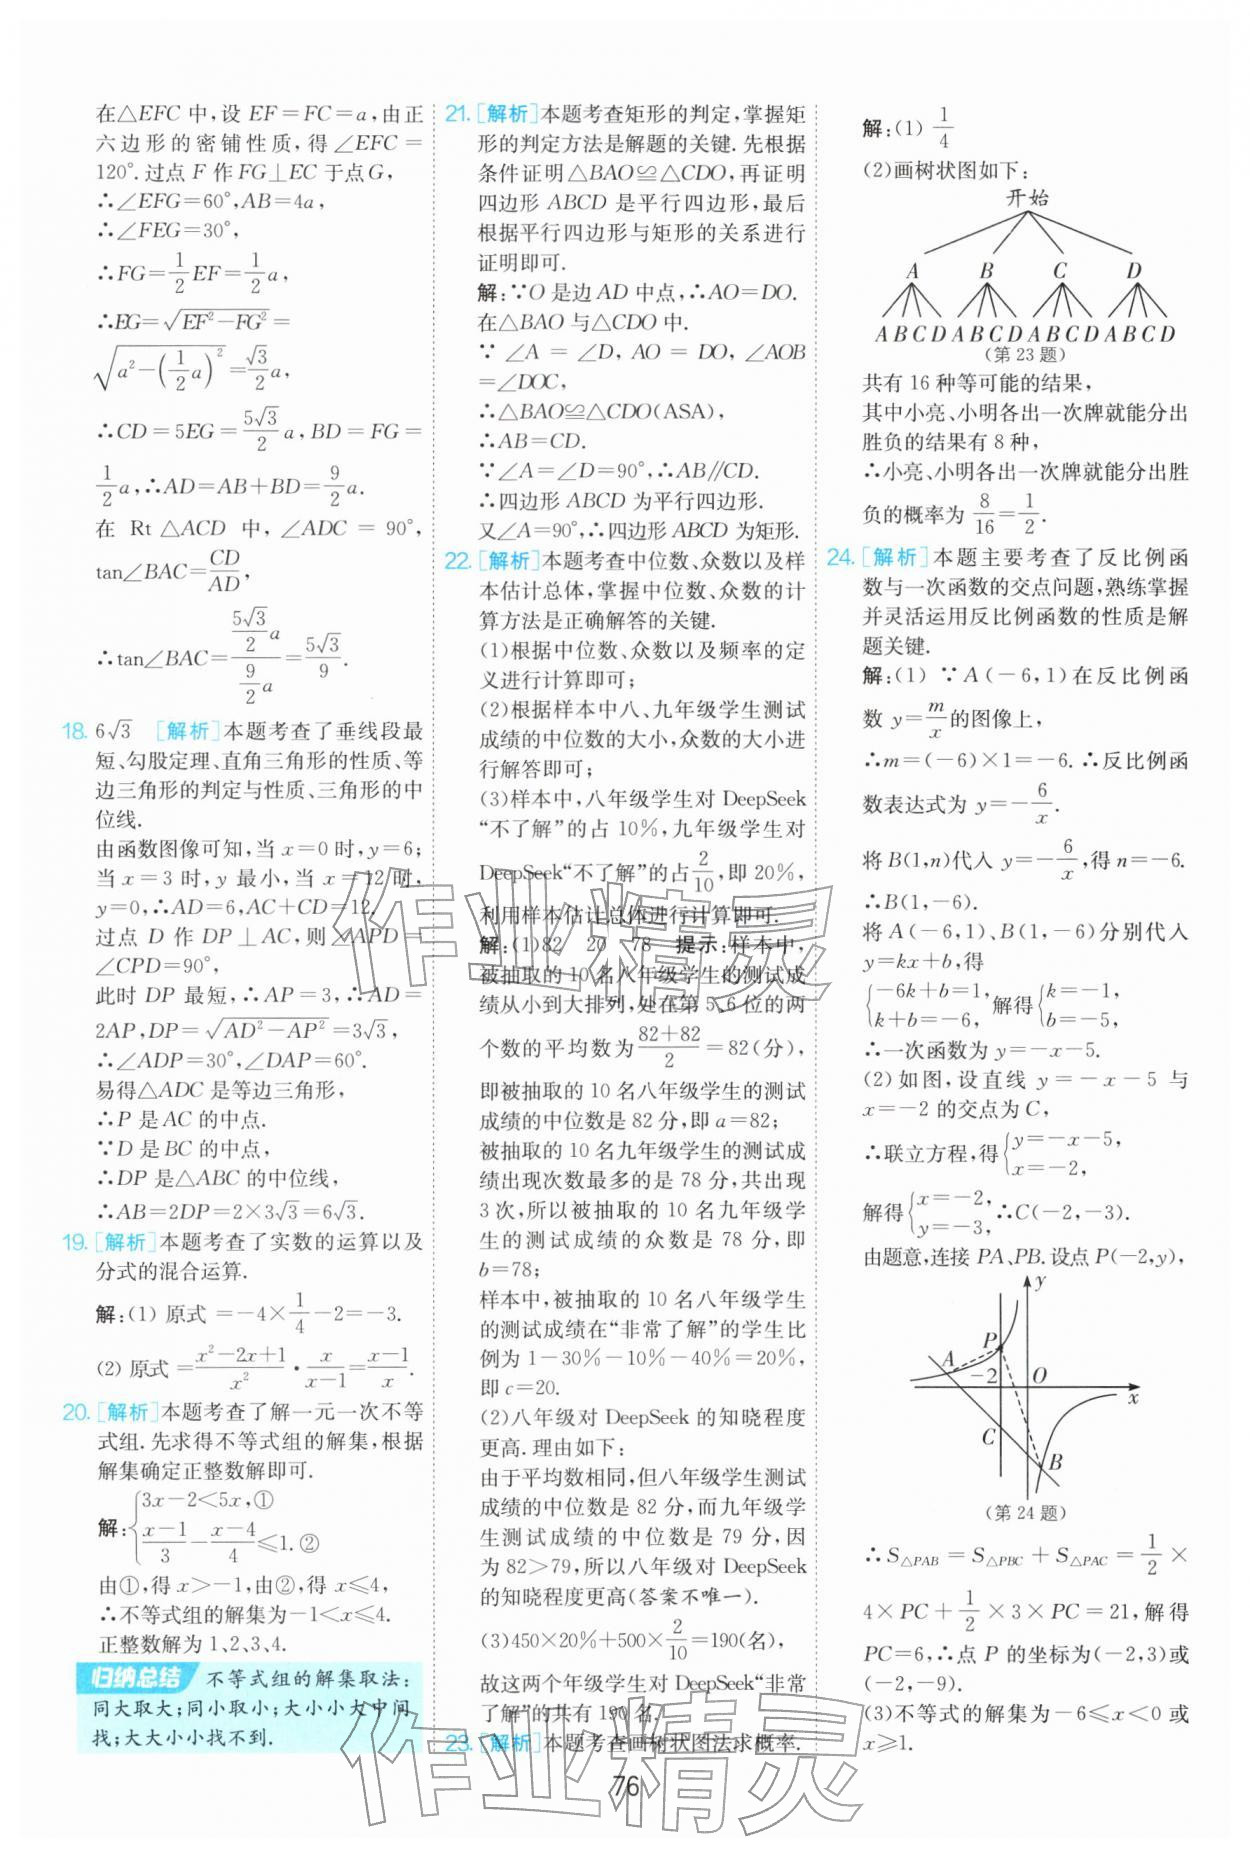 在△EFC 中,设 EF=FC=a,由正
六边形的密铺性质,得∠EFC=
120°.过点 F 作 FG⊥EC 于点G,
∴∠EFG=60°,AB=4a,
∴∠FEG=30°,
∴FG=1/2EF=1/2a,
∴EG=√(EF²-FG²)=
√(a²-(1/2a)²)=√3/2a,
∴CD=5EG=5√3/2a,BD=FG=
1/2a,∴AD=AB+BD=9/2a.
在 Rt △ACD 中,∠ADC=90°,
tan∠BAC=CD/AD,
∴tan∠BAC=(5√3/2a)/(9/2a)=5√3/9.
18. 6√3 [解析]本题考查了垂线段最
短、勾股定理、直角三角形的性质、等
边三角形的判定与性质、三角形的中
位线.
由函数图像可知,当 x=0 时,y=6;
当 x=3 时,y 最小,当 x=12 时,
y=0,∴AD=6,AC+CD=12.
过点 D 作 DP⊥AC,则∠APD=
∠CPD=90°,
此时 DP 最短,∴AP=3,∴AD=
2AP,DP=√(AD²-AP²)=3√3,
∴∠ADP=30°,∠DAP=60°.
易得△ADC 是等边三角形,
∴P 是 AC 的中点.
∵D 是 BC 的中点,
∴DP 是△ABC 的中位线,
∴AB=2DP=2×3√3=6√3.
19. [解析]本题考查了实数的运算以及
分式的混合运算.
解:(1) 原式=-4×1/4-2=-3.
(2) 原式=(x²-2x+1)/x²·x/(x-1)=(x-1)/x.
20. [解析]本题考查了解一元一次不等
式组.先求得不等式组的解集,根据
解集确定正整数解即可.
解:{3x-2<5x,①
(x-1)/3-(x-4)/4≤1.②
由①,得 x>-1,由②,得 x≤4,
∴不等式组的解集为-1<x≤4.
正整数解为 1、2、3、4.
归纳总结 不等式组的解集取法:
同大取大;同小取小;大小小大中间
找;大大小小找不到.
21. [解析]本题考查矩形的判定,掌握矩
形的判定方法是解题的关键.先根据
条件证明△BAO≌△CDO,再证明
四边形 ABCD 是平行四边形,最后
根据平行四边形与矩形的关系进行
证明即可.
解:∵O 是边 AD 中点,∴AO=DO.
在△BAO 与△CDO 中.
∵∠A=∠D,AO=DO,∠AOB
=∠DOC,
∴△BAO≌△CDO(ASA),
∴AB=CD.
∵∠A=∠D=90°,∴AB∥CD.
∴四边形 ABCD 为平行四边形.
又∠A=90°,∴四边形 ABCD 为矩形.
22. [解析]本题考查中位数、众数以及样
本估计总体,掌握中位数、众数的计
算方法是正确解答的关键.
(1)根据中位数、众数以及频率的定
义进行计算即可;
(2)根据样本中八、九年级学生测试
成绩的中位数的大小,众数的大小进
行解答即可;
(3)样本中,八年级学生对 DeepSeek
“不了解”的占 10%,九年级学生对
DeepSeek“不了解”的占2/10,即 20%,
利用样本估计总体进行计算即可.
解:(1)82 20 78 提示:样本中,
被抽取的 10 名八年级学生的测试成
绩从小到大排列,处在第 5、6 位的两
个数的平均数为(82+82)/2=82(分),
即被抽取的 10 名八年级学生的测试
成绩的中位数是 82 分,即 a=82;
被抽取的 10 名九年级学生的测试成
绩出现次数最多的是 78 分,共出现
3 次,所以被抽取的 10 名九年级学
生的测试成绩的众数是 78 分,即
b=78;
样本中,被抽取的 10 名八年级学生
的测试成绩在“非常了解”的学生比
例为 1-30%-10%-40%=20%,
即 c=20.
(2)八年级对 DeepSeek 的知晓程度
更高.理由如下:
由于平均数相同,但八年级学生测试
成绩的中位数是 82 分,而九年级学
生测试成绩的中位数是 79 分,因
为 82>79,所以八年级对 DeepSeek
的知晓程度更高(答案不唯一).
(3)450×20%+500×2/10=190(名),
故这两个年级学生对 DeepSeek“非常
了解”的共有 190 名.
23. [解析]本题考查画树状图法求概率.
解:(1) 1/4
(2)画树状图如下:
开始
A B C D
A B C D A B C D A B C D A B C D
(第 23 题)
共有 16 种等可能的结果,
其中小亮、小明各出一次牌就能分出
胜负的结果有 8 种,
∴小亮、小明各出一次牌就能分出胜
负的概率为 8/16=1/2.
24. [解析]本题主要考查了反比例函
数与一次函数的交点问题,熟练掌握
并灵活运用反比例函数的性质是解
题关键.
解:(1) ∵A(-6,1)在反比例函
数 y=m/x的图像上,
∴m=(-6)×1=-6.∴反比例函
数表达式为 y=-6/x.
将 B(1,n)代入 y=-6/x,得 n=-6.
∴B(1,-6).
将 A(-6,1)、B(1,-6)分别代入
y=kx+b,得
{-6k+b=1,k+b=-6,解得{k=-1,b=-5,
∴一次函数为 y=-x-5.
(2) 如图,设直线 y=-x-5 与
x=-2 的交点为 C,
∴联立方程,得{y=-x-5,x=-2,
解得{x=-2,y=-3,∴C(-2,-3).
由题意,连接 PA、PB.设点 P(-2,y),
y
P
A
-2 O
x
C
B
(第 24 题)
∴S△PAB=S△PBC+S△PAC=1/2×
4×PC+1/2×3×PC=21,解得
PC=6,∴点 P 的坐标为(-2,3)或
(-2,-9).
(3)不等式的解集为-6≤x<0 或
x≥1.
76
作业精灵
作业精灵